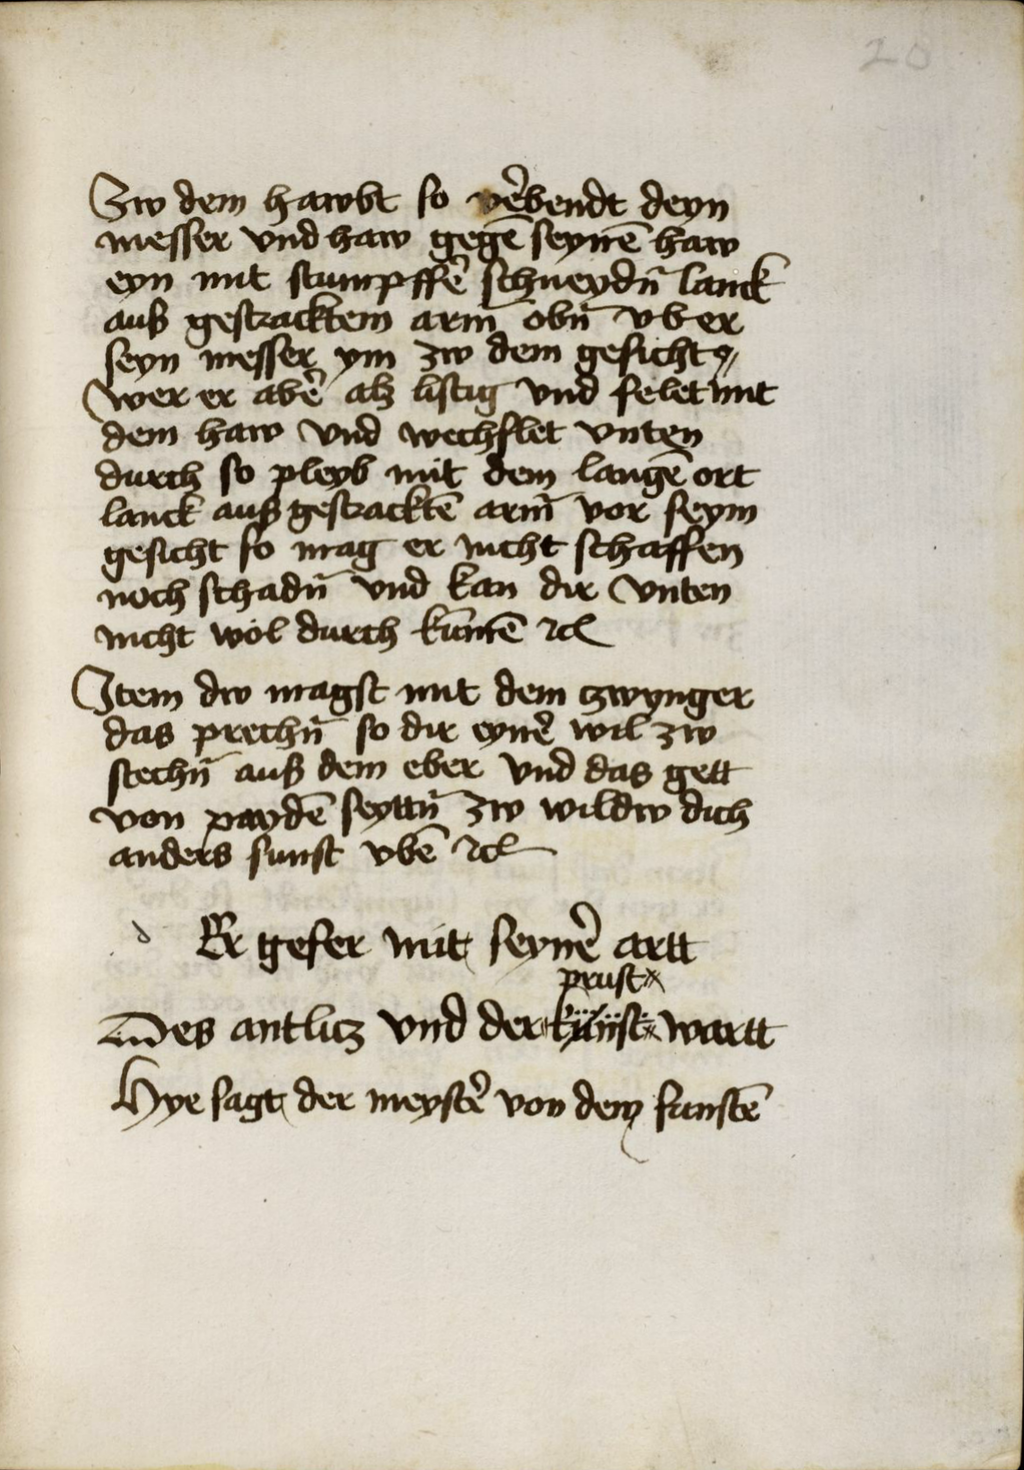 20
Zw dem hawbt so vẽbendt deyn
messer vnd haw gegẽ seynẽ haw
eyn mit stumpffẽ schneydn̄ lanck
auß gestracktem arm̄ obn̄ vber
seyn messer ym zw dem gesicht
Wer er abẽ alz listig vnd felet mit
dem haw vnd wechslet vnten
durch so pleyb mit dem langẽ ort
lanck auß gestracktẽ arm̄ vor seym
gesicht so mag er nicht schaffen
noch schadn̄ vnd kan dir vnten
nicht wol durch kūmẽ ⁊cͭ
Item dw magst mit dem zwynger
das prechn̄ so dir eynẽ wil zw
stechn̄ auß dem eber vnd das gett
von paydẽ seyttn̄ zw wildw dich
anders sunst vbẽ ⁊cͭ
d Er gefer mit seynẽ artt
prust
Des antlitz vnd der kunst wartt
Hye sagt der meystẽ von dem funftẽ